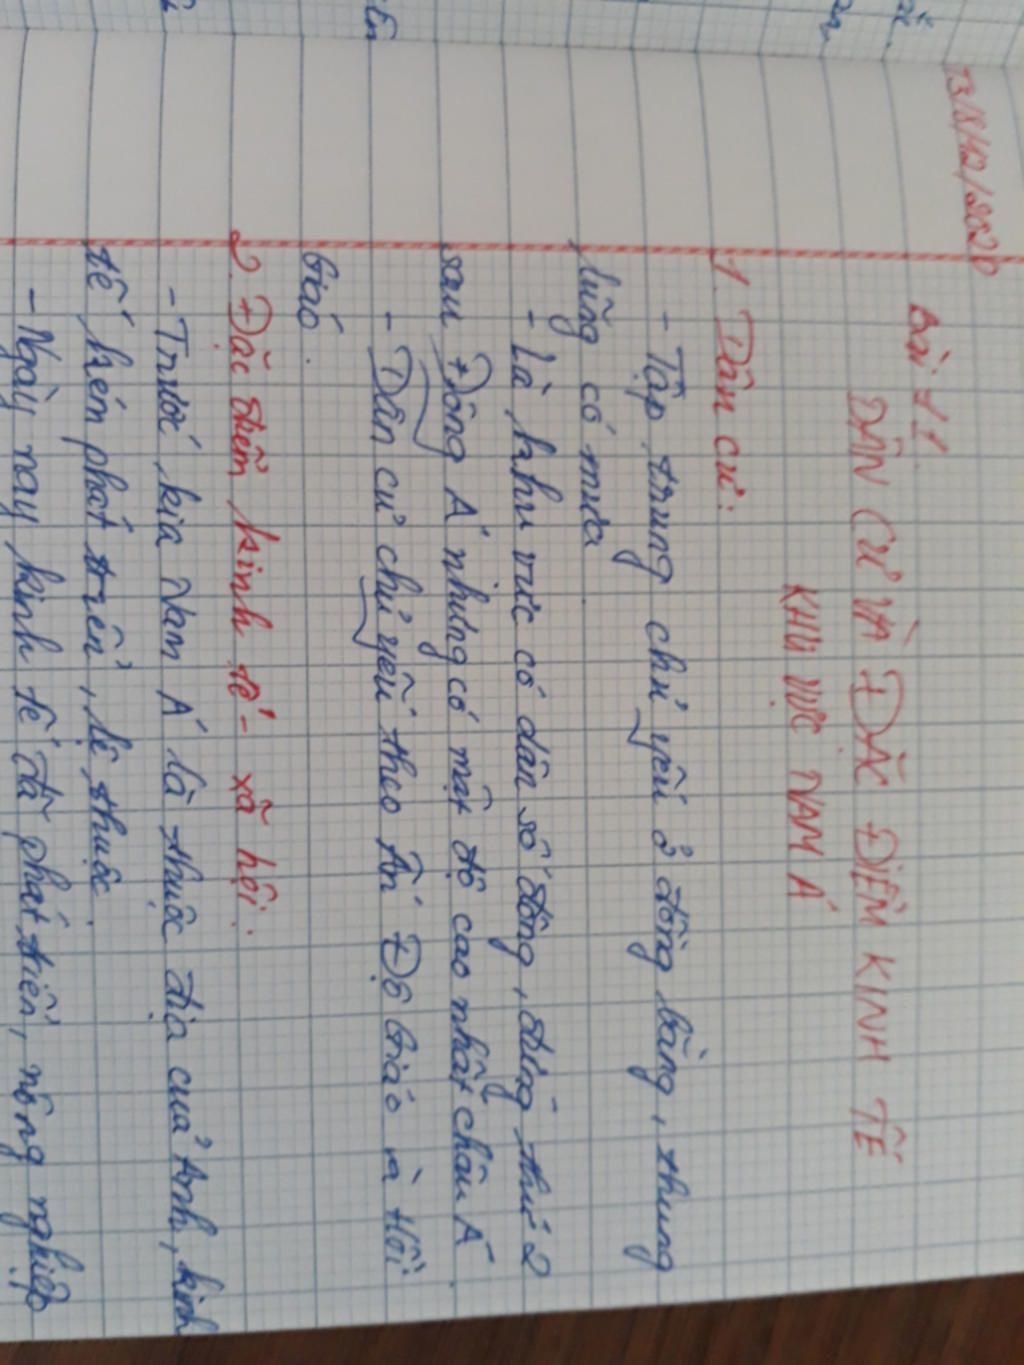 T3/8/12/2020
Bài 11
DÂN CƯ VÀ ĐẶC ĐIỂM KINH TẾ
KHU VỰC NAM Á
1. Dân cư:
- Tập trung chủ yếu ở đồng bằng, thung
lũng có mưa.
- Là khu vực có dân số đông, đứng thứ 2
sau Đông Á nhưng có mật độ cao nhất châu Á.
- Dân cư chủ yếu theo Ấn Độ Giáo và Hồi
Giáo.
2. Đặc điểm kinh tế - xã hội.
- Trước kia Nam Á là thuộc địa của Anh, kinh
tế kém phát triển, lệ thuộc.
- Ngày nay kinh tế đã phát triển, nông nghiệp